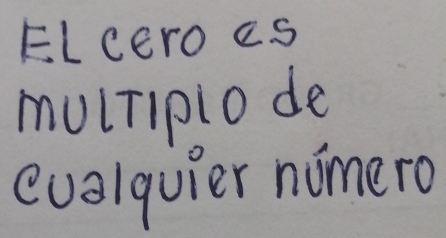 El cero es
multiplo de
cualquier número